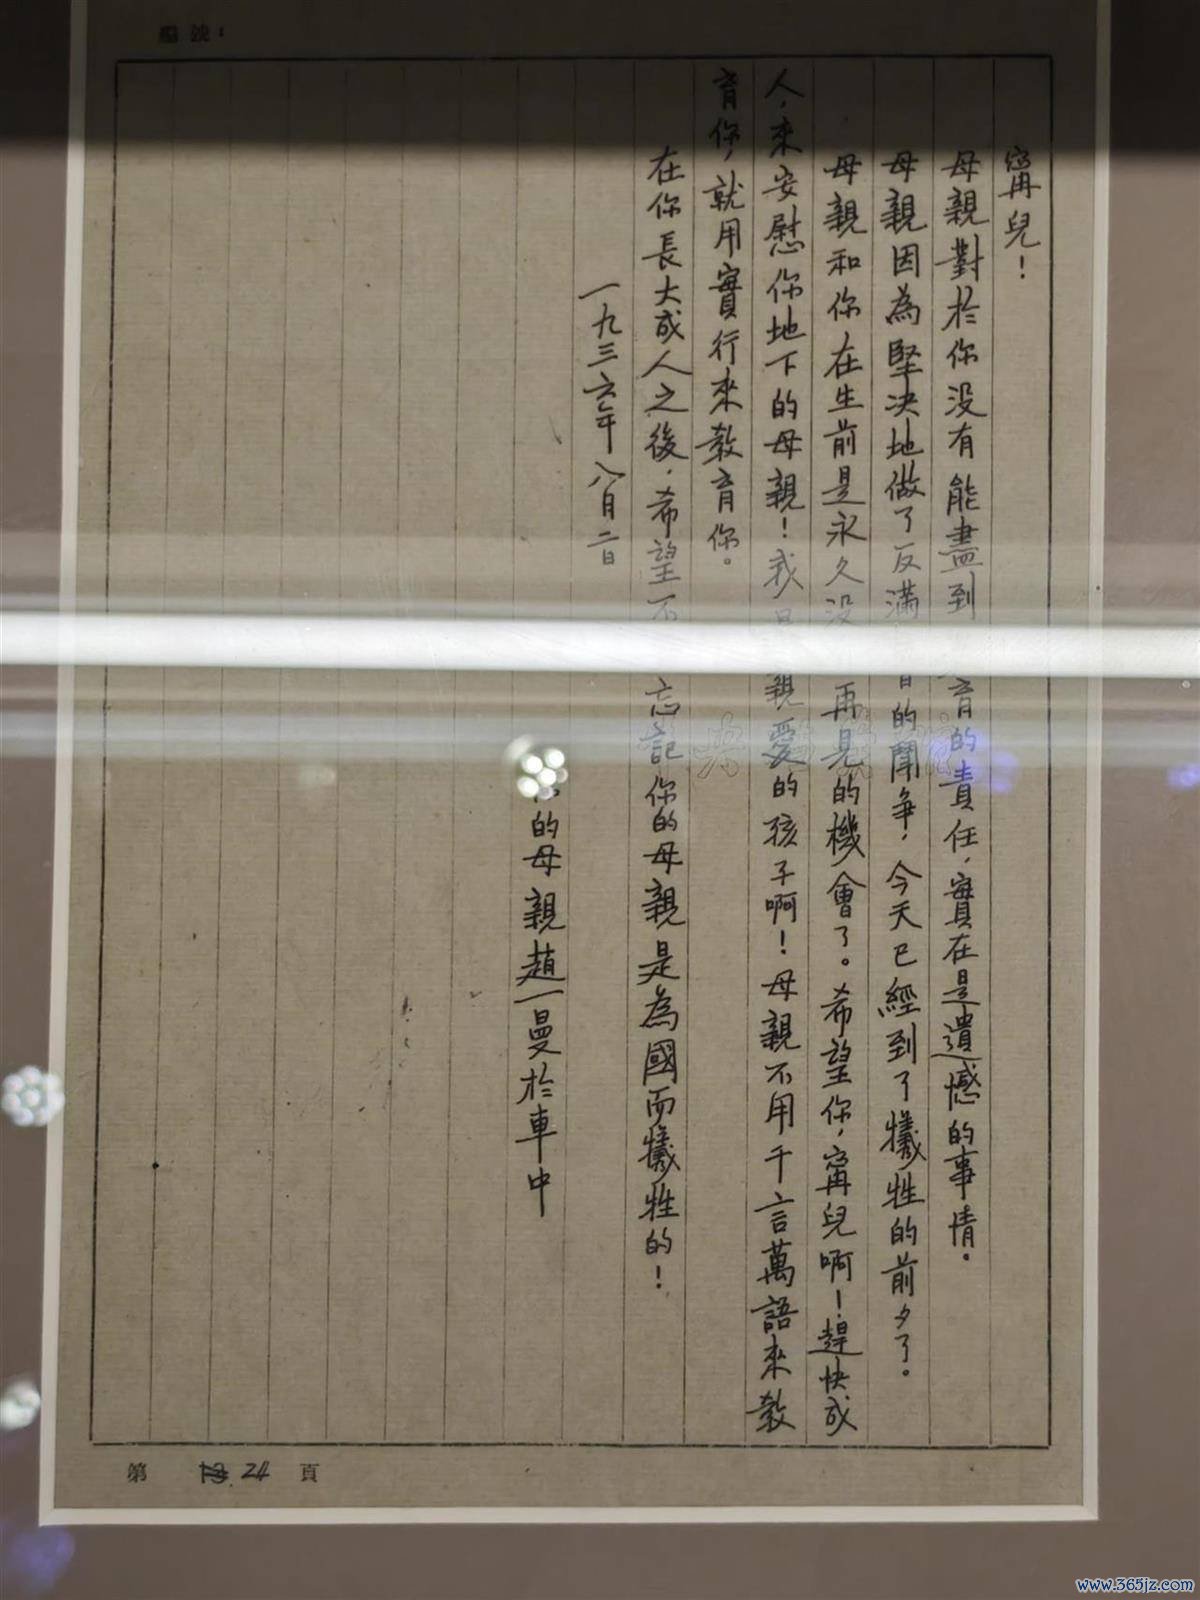 甯兒！
母親對於你没有能盡到育的責任，實在是遺憾的事情。
母親因為堅决地做了反滿的鬪争，今天已經到了犧牲的前夕了。
母親和你在生前是永久没再見的機會了。希望你，甯兒啊！趕快成
人，來安慰你地下的母親！我親愛的孩子啊！母親不用千言萬語來教
育你，就用實行來教育你。
在你長大成人之後，希望不忘記你的母親是為國而犧牲的！
一九三六年八月二日
的母親趙一曼於車中
第 24 頁
www.365jz.com